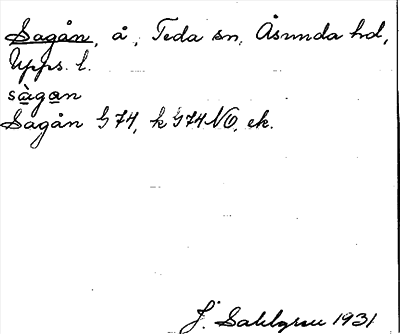 Sagån, å, Teda sn, Åsunda hd,
Upps. l.
sàgan
Sagån G 74, k G 74 NO, ek.
J. Sahlgren 1931